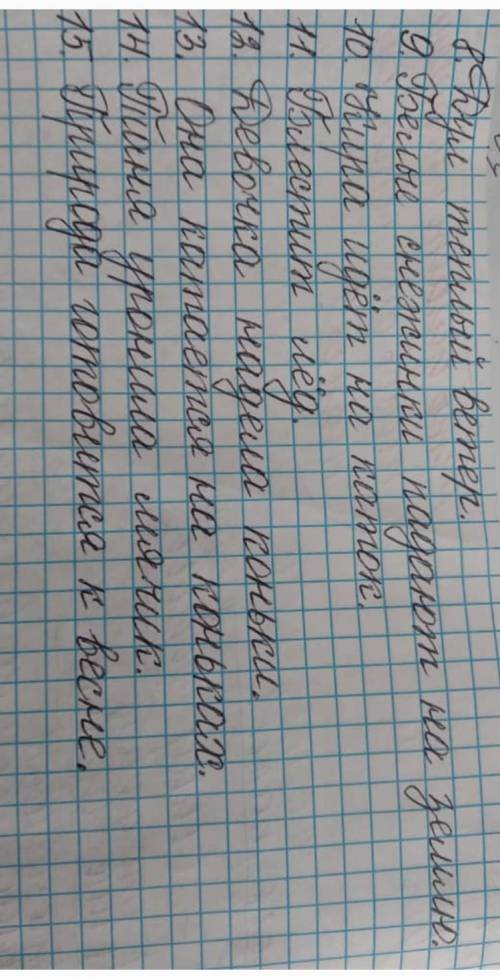 8. Дул теплый ветер.
9. Белые снежинки падают на землю.
10. Кира идёт на каток.
11. Блестит лёд.
12. Девочка надела коньки.
13. Она катается на коньках.
14. Таня уронила мячик.
15. Природа готовится к весне.